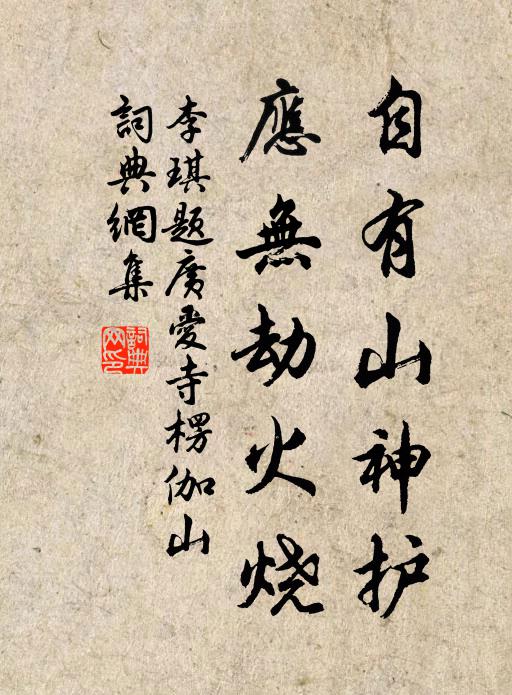 自有山神护
應無劫火烧
李琪题廣愛寺楞伽山
詞典網集
詞典网印